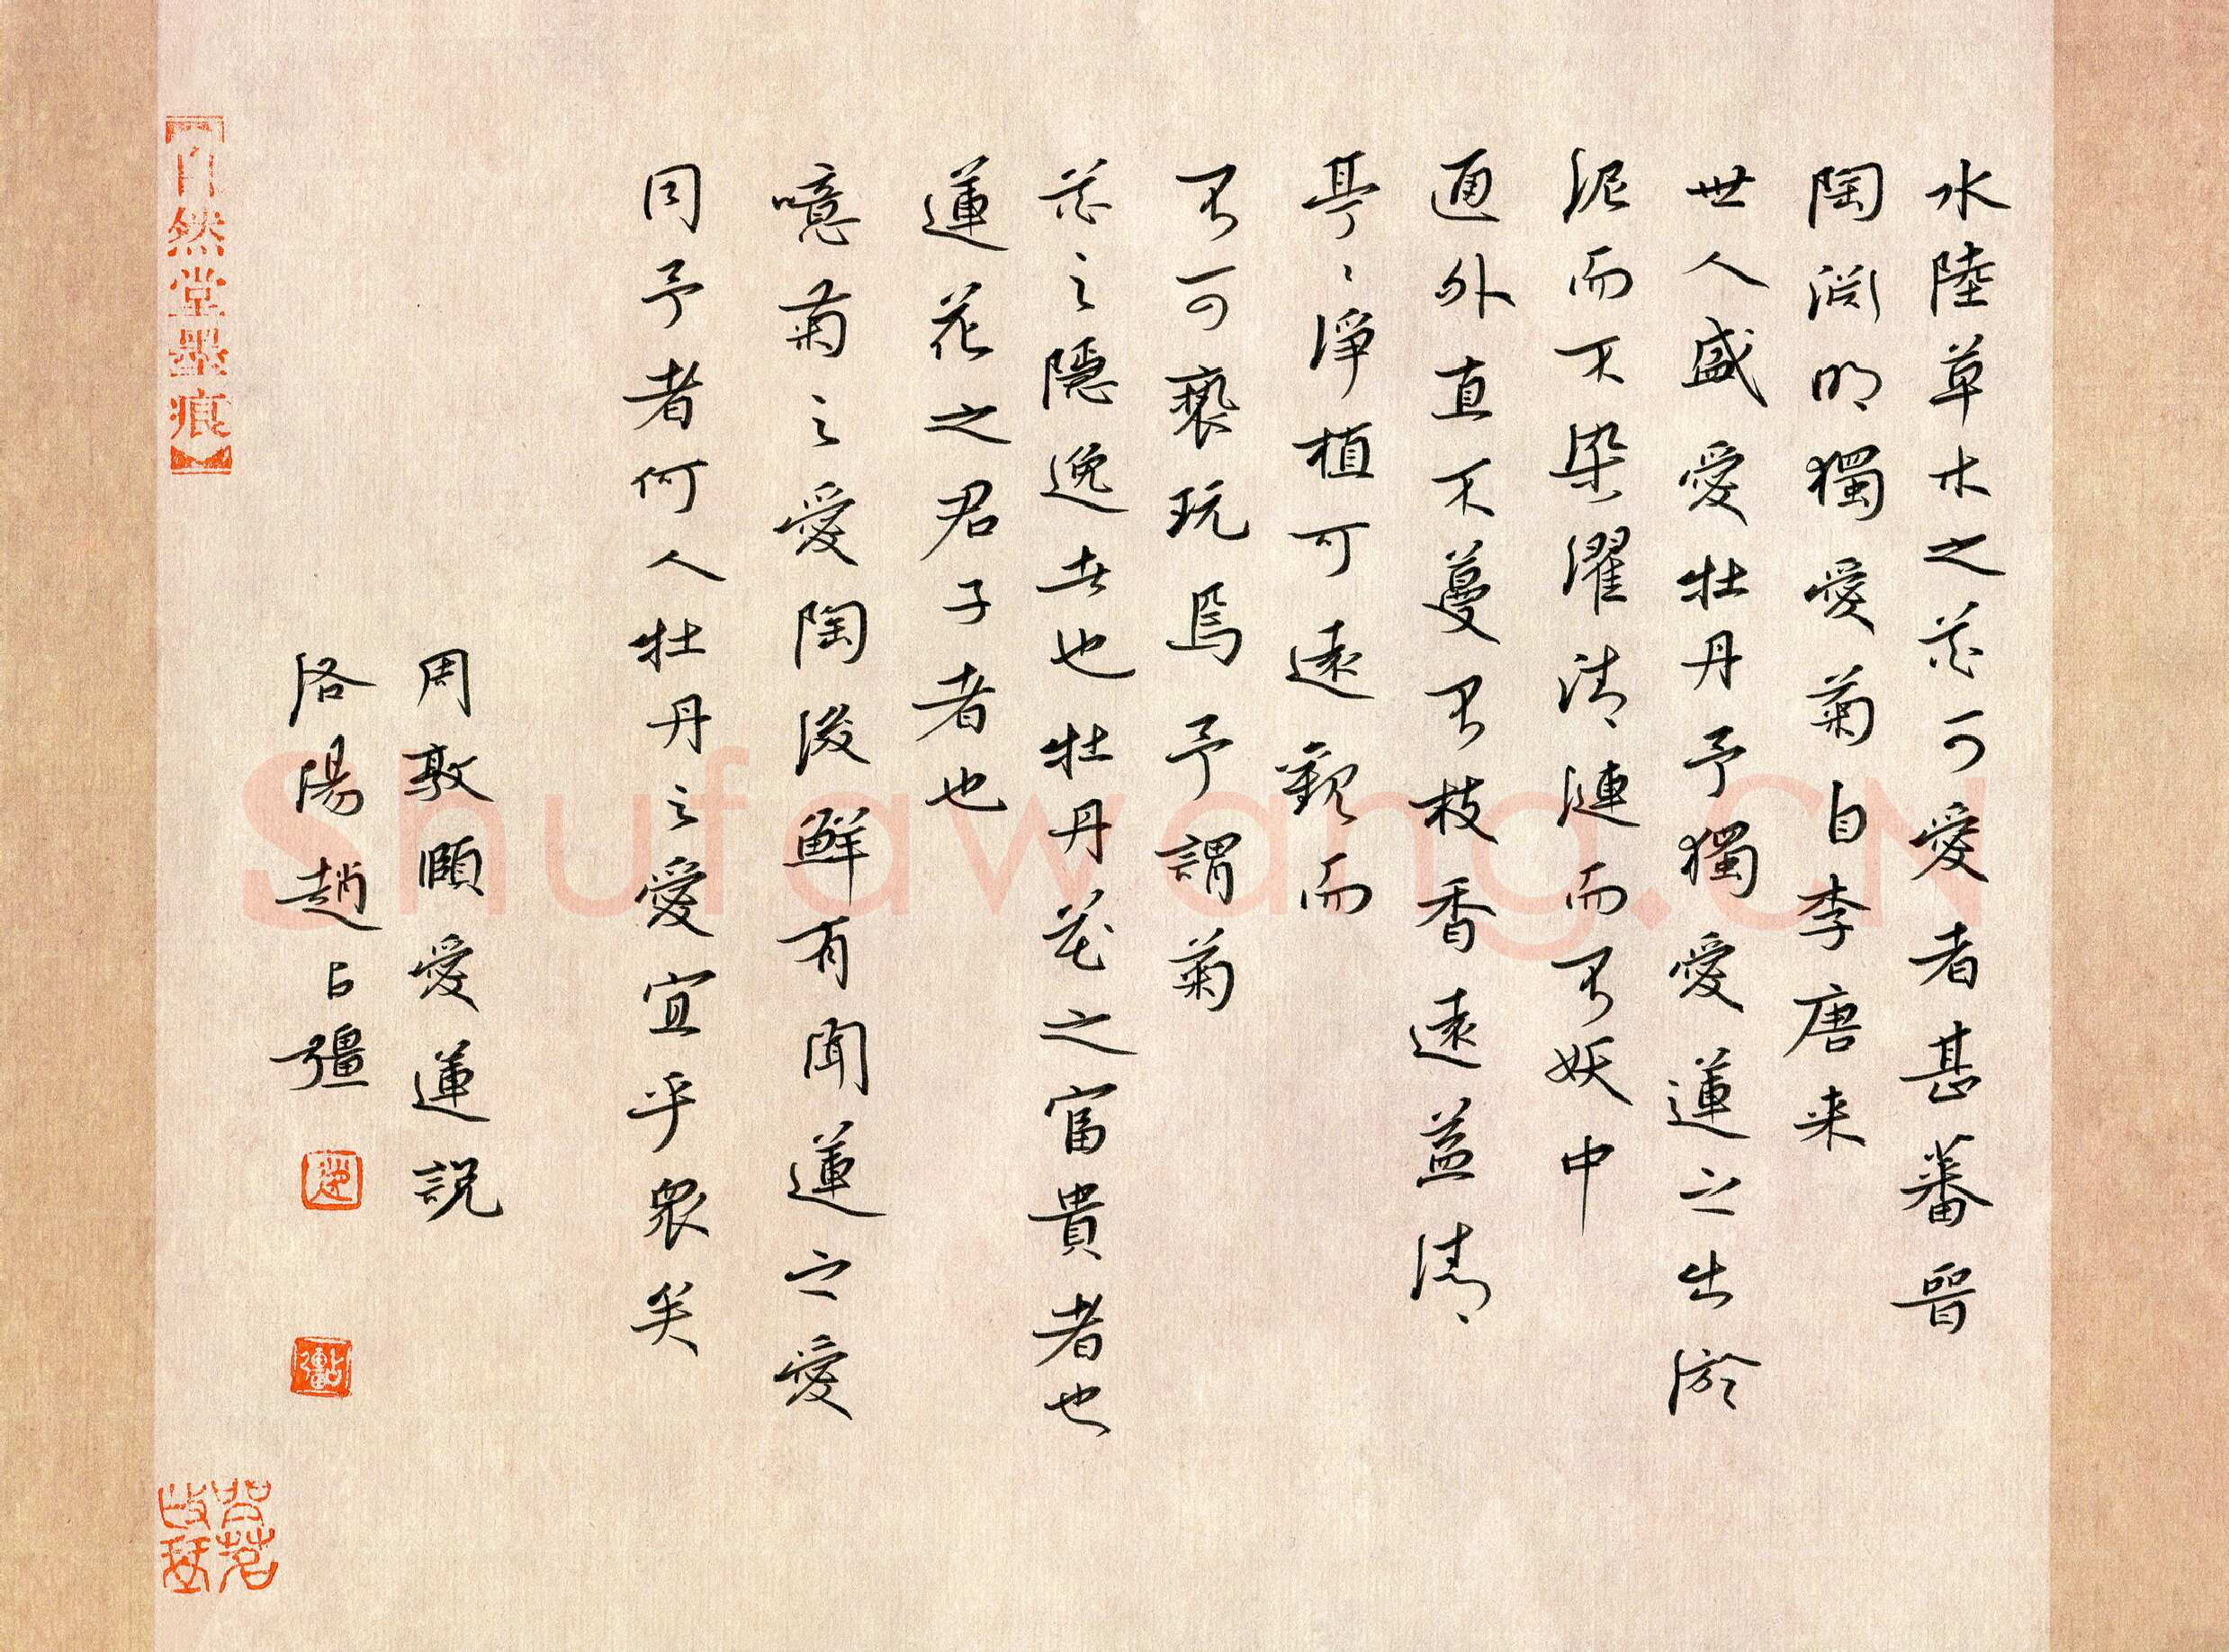 水陸草木之花可愛者甚蕃晉
陶淵明獨愛菊自李唐来
世人盛愛牡丹予獨愛蓮之出淤
泥而不染濯清漣而不妖中
通外直不蔓不枝香遠益清
亭〻淨植可遠觀而
不可褻玩焉予謂菊
花之隱逸者也牡丹花之富貴者也
蓮花之君子者也
噫菊之愛陶後鮮有聞蓮之愛
同予者何人牡丹之愛宜乎眾矣
周敦頤愛蓮説
洛陽趙占彊
自然堂墨痕
Shufawang.CN